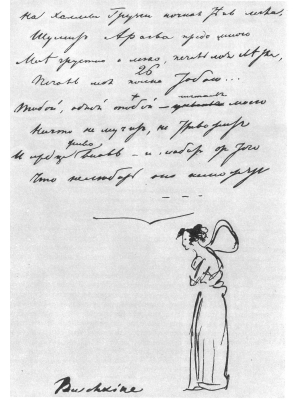 на холмы Грузии ночная легла,
Шумит Арагва предо мною
Мне грустно и легко, печаль моя
Печаль моя полна Тобою...
Тобой, одной тобой — моего
Ничто не мучит, не тревожит
И сердце вновь — и любит от того
Что не любить оно не может
Puschkine